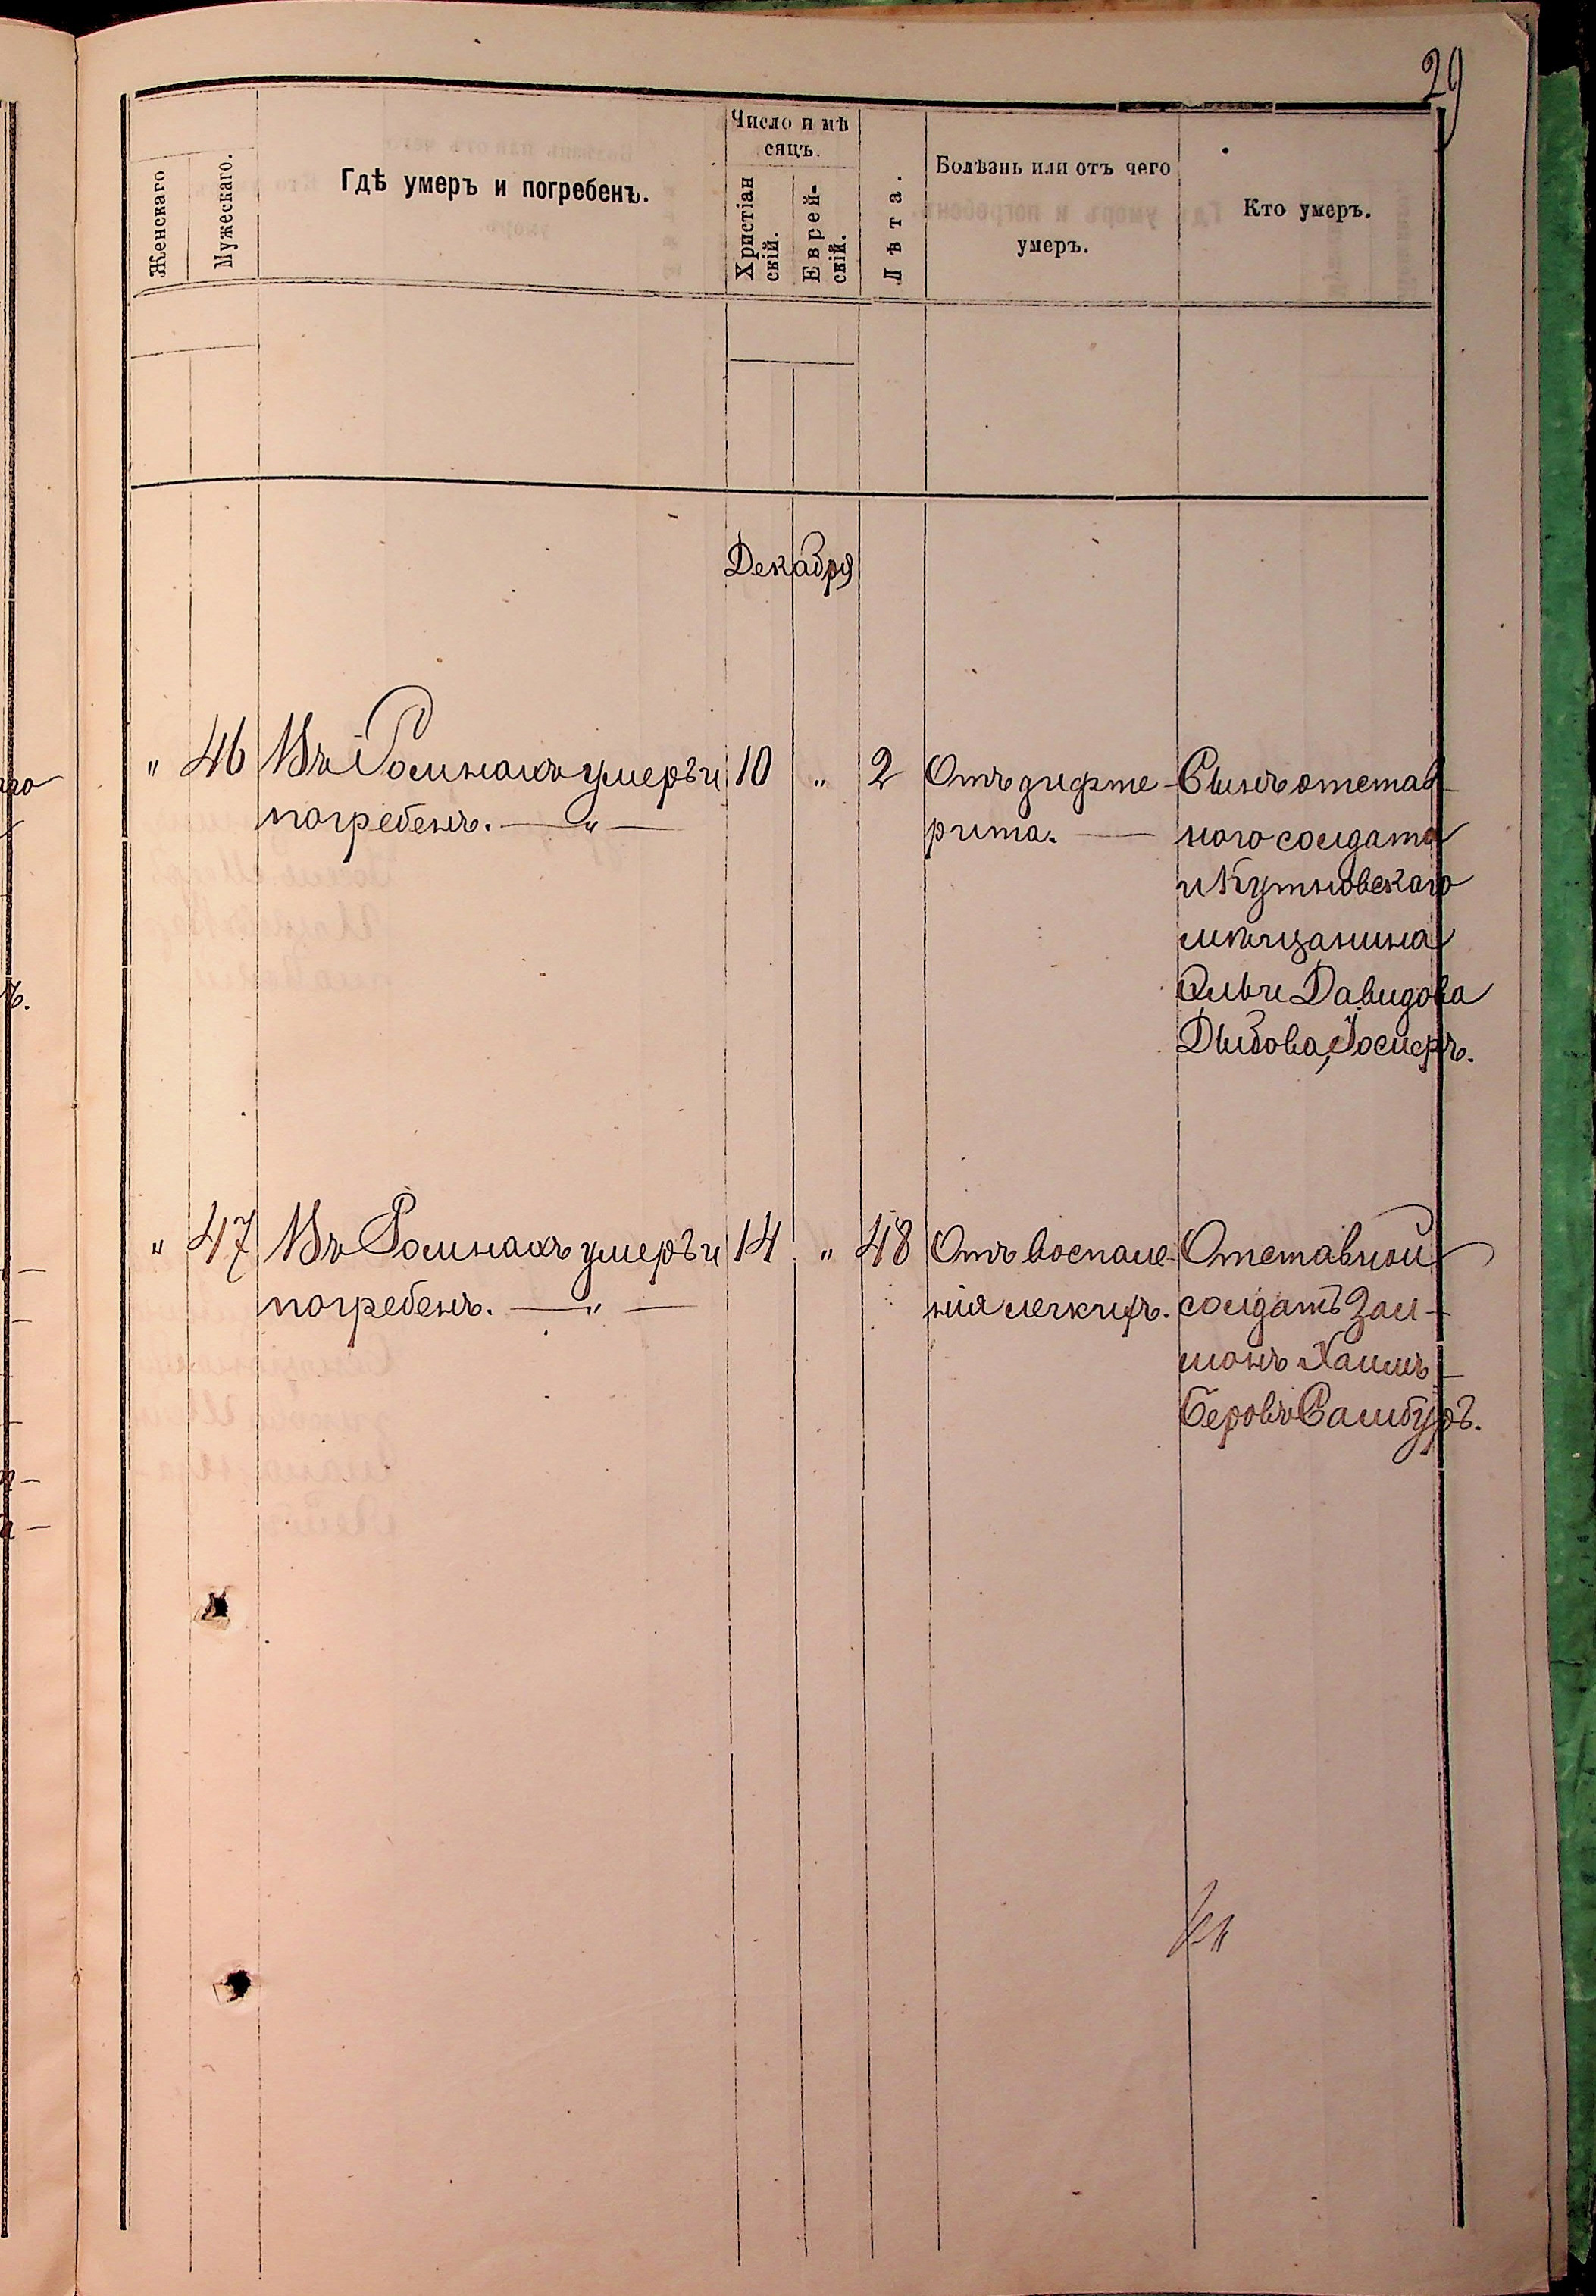 29
Женскаго
Мужескаго.
Гдѣ умеръ и погребенъ.
Число и мѣ
сяцъ.
Христіан
скій.
Еврей-
скій.
Лѣта.
Болѣзнь или отъ чего
умеръ.
Кто умеръ.
Декабря
" 46 Въ Ромнахъ умеръ и
погребенъ. — " —
10 " 2
Отъ дифте-
рита. —
Сынъ отстав-
ного солдата
и Кутновскаго
мѣщанина
Давидова
Дыбова, Іосифъ.
" 47 Въ Ромнахъ умеръ и
погребенъ. — " —
14 " 48
Отъ воспале-
нія легкихъ.
Отставной
солдатъ Зал-
монъ Хаимъ-
Беровъ Самбуръ.